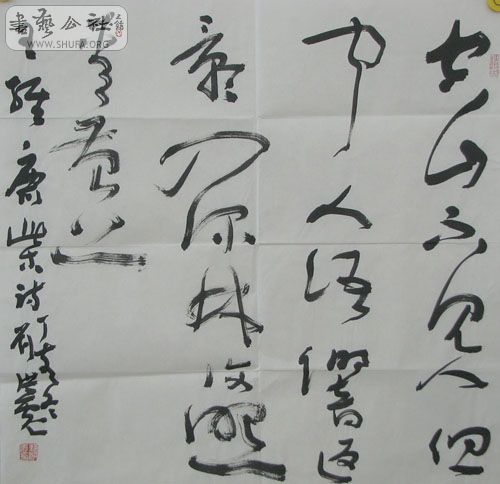 書藝公社
WWW.SHUFA.ORG
空山不见人但
闻人语響返
景入深林復照
青苔上
王維鹿柴诗丁亥冬